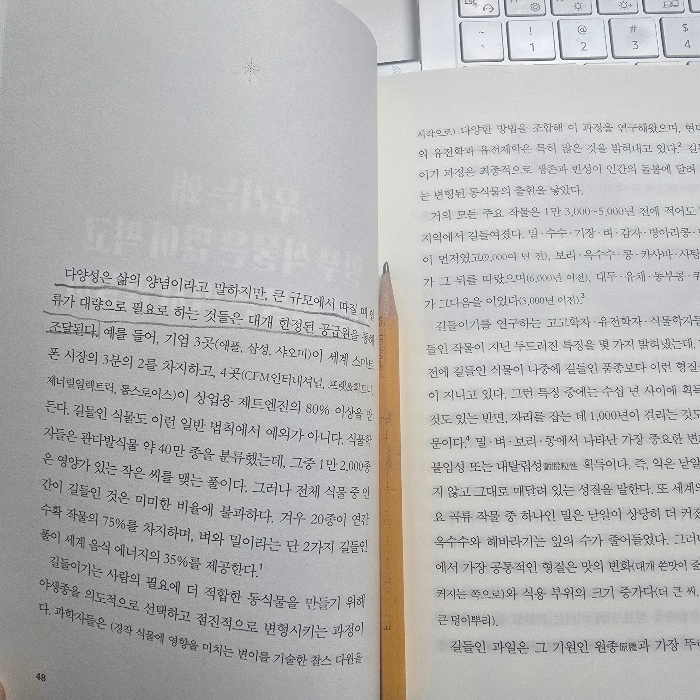 다양성은 삶의 양념이라고 말하지만, 큰 규모에서 따질 때 인
류가 대량으로 필요로 하는 것들은 대개 한정된 공급원을 통해
조달된다. 예를 들어, 기업 3곳(애플, 삼성, 샤오미)이 세계 스마트
폰 시장의 3분의 2를 차지하고, 4곳(CFM인터내셔널, 프랫&휘트니,
제너럴일렉트릭, 롤스로이스)이 상업용 제트엔진의 80% 이상을 만
든다. 길들인 식물도 이런 일반 법칙에서 예외가 아니다. 식물학
자들은 관다발식물 약 40만 종을 분류했는데, 그중 1만 2,000종
은 영양가 있는 작은 씨를 맺는 풀이다. 그러나 전체 식물 중 인
간이 길들인 것은 미미한 비율에 불과하다. 겨우 20종이 연간
수확 작물의 75%를 차지하며, 벼와 밀이라는 단 2가지 길들인
풀이 세계 음식 에너지의 35%를 제공한다.1
길들이기는 사람의 필요에 더 적합한 동식물을 만들기 위해
야생종을 의도적으로 선택하고 점진적으로 변형시키는 과정이
다. 과학자들은 (경작 식물에 영향을 미치는 변이를 기술한 찰스 다윈을
48
시작으로) 다양한 방법을 조합해 이 과정을 연구해왔으며, 현대
의 유전학과 유전체학은 특히 많은 것을 밝혀내고 있다.2 길들
이기 과정은 최종적으로 생존과 번성이 인간의 돌봄에 달려
는 변형된 동식물의 출현을 낳았다.
거의 모든 주요 작물은 1만 3,000~5,000년 전에 적어도
지역에서 길들여졌다. 밀·수수·기장·벼·감자·병아리콩·
이 먼저였고(9,000여 년 전), 보리·옥수수·콩·카사바·사탕
가 그 뒤를 따랐으며(6,000년 이전), 대두·유채·동부콩·
가 그다음을 이었다(3,000년 이전).3
길들이기를 연구하는 고고학자·유전학자·식물학자들
들인 작물이 지닌 두드러진 특징을 몇 가지 밝혀냈는데,
전에 길들인 식물이 나중에 길들인 품종보다 이런 형질
이 지니고 있다. 그런 특징 중에는 수십 년 사이에 획득
것도 있는 반면, 자리를 잡는 데 1,000년이 걸리는 것도
문이다.4 밀·벼·보리·콩에서 나타난 가장 중요한 변
붙임성 또는 내탈립성耐脫粒性 획득이다. 즉, 익은 낱알
지 않고 그대로 매달려 있는 성질을 말한다. 또 세계의
요 곡류 작물 중 하나인 밀은 낟알이 상당히 더 커졌
옥수수와 해바라기는 잎의 수가 줄어들었다. 그러나
에서 가장 공통적인 형질은 맛의 변화(대개 쓴맛이 줄
커지는 쪽으로)와 식용 부위의 크기 증가다(더 큰 씨,
큰 덩이뿌리).
길들인 과일은 그 기원인 원종原種과 가장 뚜렷
~ ! @ # $
` 1 2 3 4